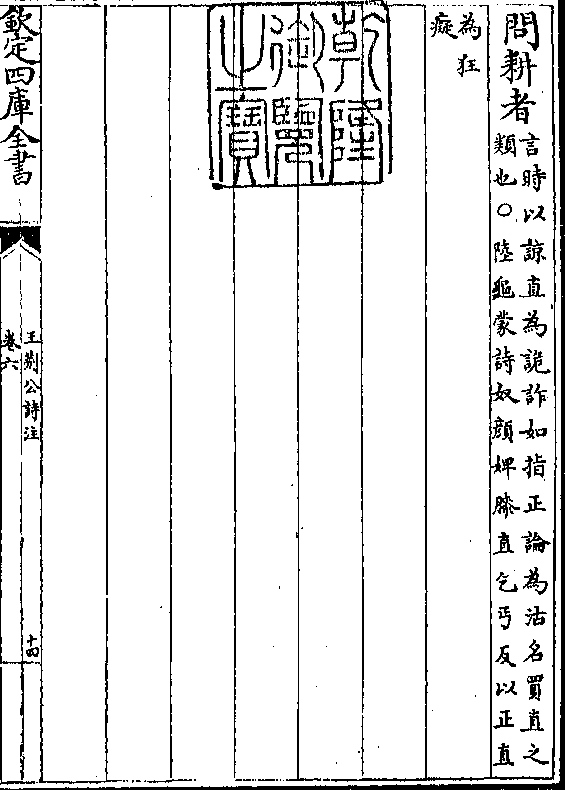 問耕者
言時以諒直為詭詐如指正論為沽名買直之
類也○陸龜蒙詩奴顔婢膝直乞丐反以正直
為狂
癡
乾隆
御覽
之寶
欽定四庫全書
王荆公詩注
卷六
十四